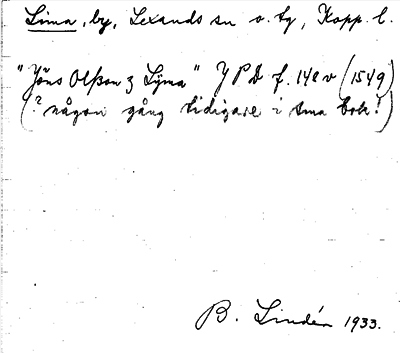 Lima, by, Lexands sn o. tg, Kopp. l.
"Jöns Olßon ʒ Lÿma" f. 148 v (1549)
(? någon gång tidigare i sma bok!)
B. Lindén 1933.